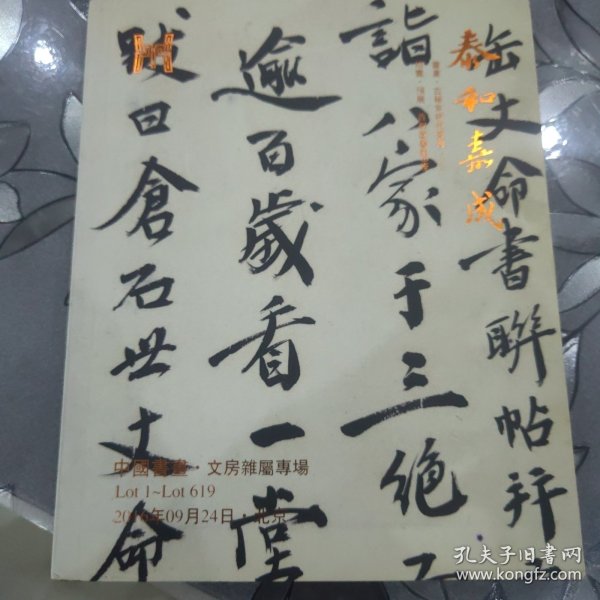 泰和嘉成
缶丈命書聯帖并
詣八家于三絶
逾百歲看一堂
跋曰倉石世丈命
中國書畫·文房雜屬專場
Lot 1~Lot 619
2016年09月24日·北京
孔夫子旧书网
www.kongfz.com